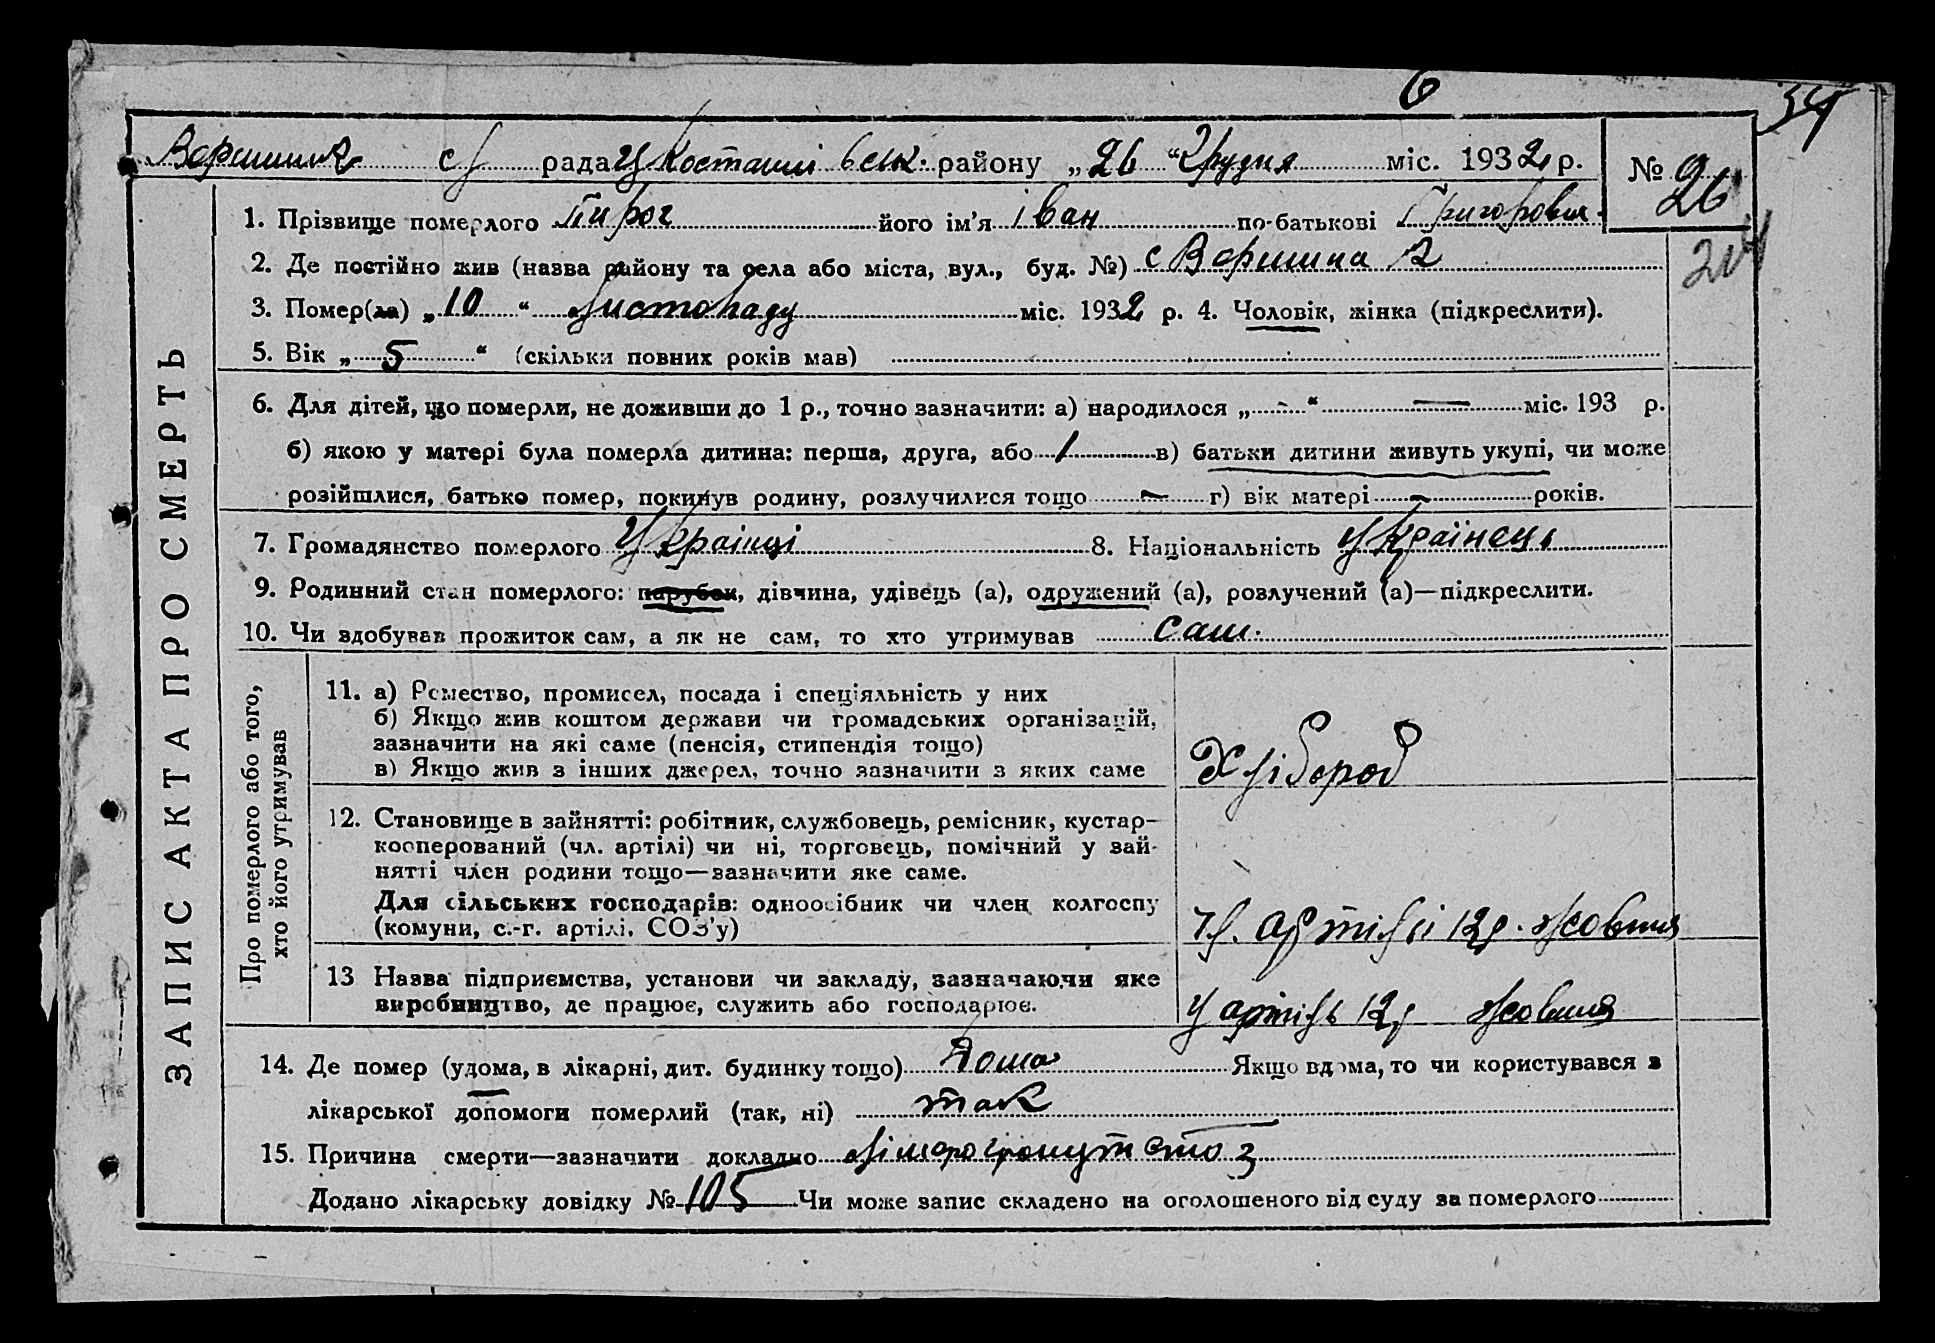 6
54
с/ рада району „26“ Грудня міс. 1932 р.
№ 26
1. Прізвище померлого Пирог його ім’я Іван по-батькові Григорович
204
2. Де постійно жив (назва району та села або міста, вул., буд. №) с
3. Помер(ла) „10“ Листопаду міс. 1932 р. 4. Чоловік, жінка (підкреслити).
5. Вік „5“ (скільки повних років мав)
6. Для дітей, що померли, не доживши до 1 р., точно зазначити: а) народилося „-“ — міс. 193 р.
б) якою у матері була померла дитина: перша, друга, або 1 в) батьки дитини живуть укупі, чи може
розійшлися, батько помер, покинув родину, розлучилися тощо – г) вік матері – років.
7. Громадянство померлого Українці 8. Національність Українець
9. Родинний стан померлого: парубок, дівчина, удівець (а), одружений (а), розлучений (а)—підкреслити.
10. Чи здобував прожиток сам, а як не сам, то хто утримував сам.
ЗАПИС АКТА ПРО СМЕРТЬ
Про померлого або того,
хто його утримував
11. а) Ремество, промисел, посада і спеціяльність у них
б) Якщо жив коштом держави чи громадських організацій,
зазначити на які саме (пенсія, стипендія тощо)
в) Якщо жив з інших джерел, точно зазначити з яких саме
Хлібороб
12. Становище в зайнятті: робітник, службовець, ремісник, кустар—
кооперований (чл. артілі) чи ні, торговець, помічний у зай-
нятті член родини тощо—зазначити яке саме.
Для сільських господарів: одноосібник чи член колгоспу
(комуни, с.-г. артілі, СОЗ’у)
чл. артілі 12р. Жовтня
13 Назва підприємства, установи чи закладу, зазначаючи яке
виробництво, де працює, служить або господарює.
У артіль 12р Жовтня
14. Де помер (удома, в лікарні, дит. будинку тощо) Дома Якщо вдома, то чи користувався з
лікарської допомоги померлий (так, ні) так
15. Причина смерти—зазначити докладно
Додано лікарську довідку № 105 Чи може запис складено на оголошеного від суду за померлого